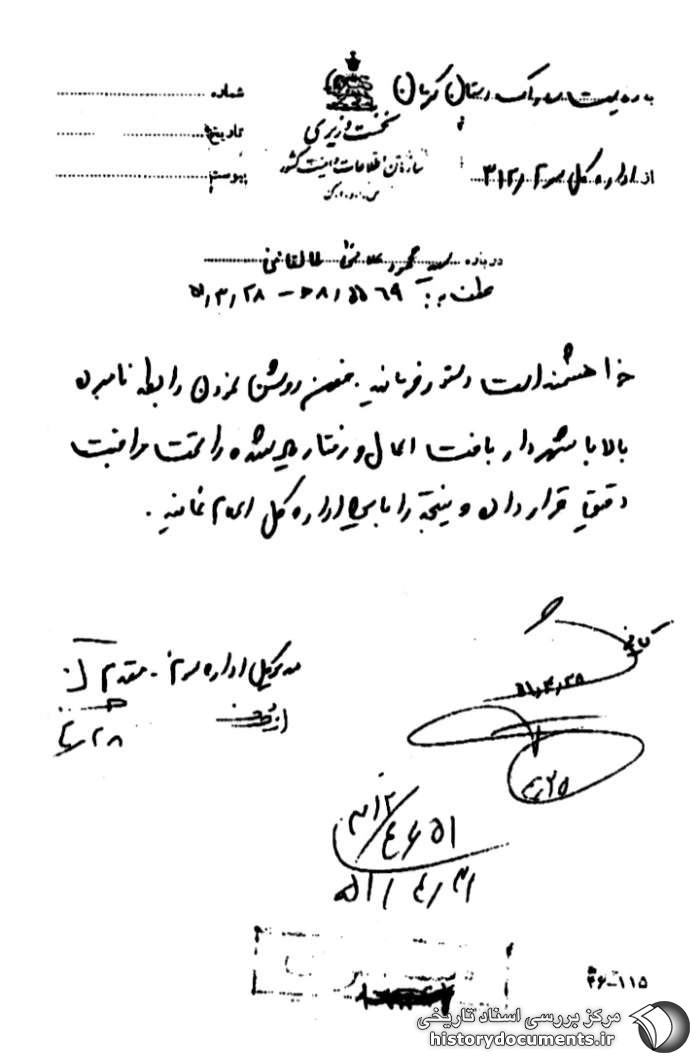 به ریاست ساواک استان کرمان
نخست وزیری
سازمان اطلاعات و امنیت کشور
س . ا . و . ا . ک
از اداره کل سوم ۳۱۲
شماره
تاریخ
پیوست
درباره سید محمود علائی طالقانی
عطف به: ۵۵۶۹ / ه‍ ۸ - ۵۱/۳/۲۸
خواهشمند است دستور فرمائید . ضمن روشن نمودن رابطه نامبرده
بالا با شهردار بافت اعمال و رفتار را تحت مراقبت
دقیق قرار داده و نتیجه را باین اداره کل اعلام نمایند .
مدیرکل اداره سوم . مقدم
۴/۲۸
۵۱/۴/۲۵
۴/۲۵
۳۱۲/۴۶۵۱
۵۱/۴/۳۱
۱۱۵-۴۶
مرکز بررسی اسناد تاریخی
historydocuments.ir